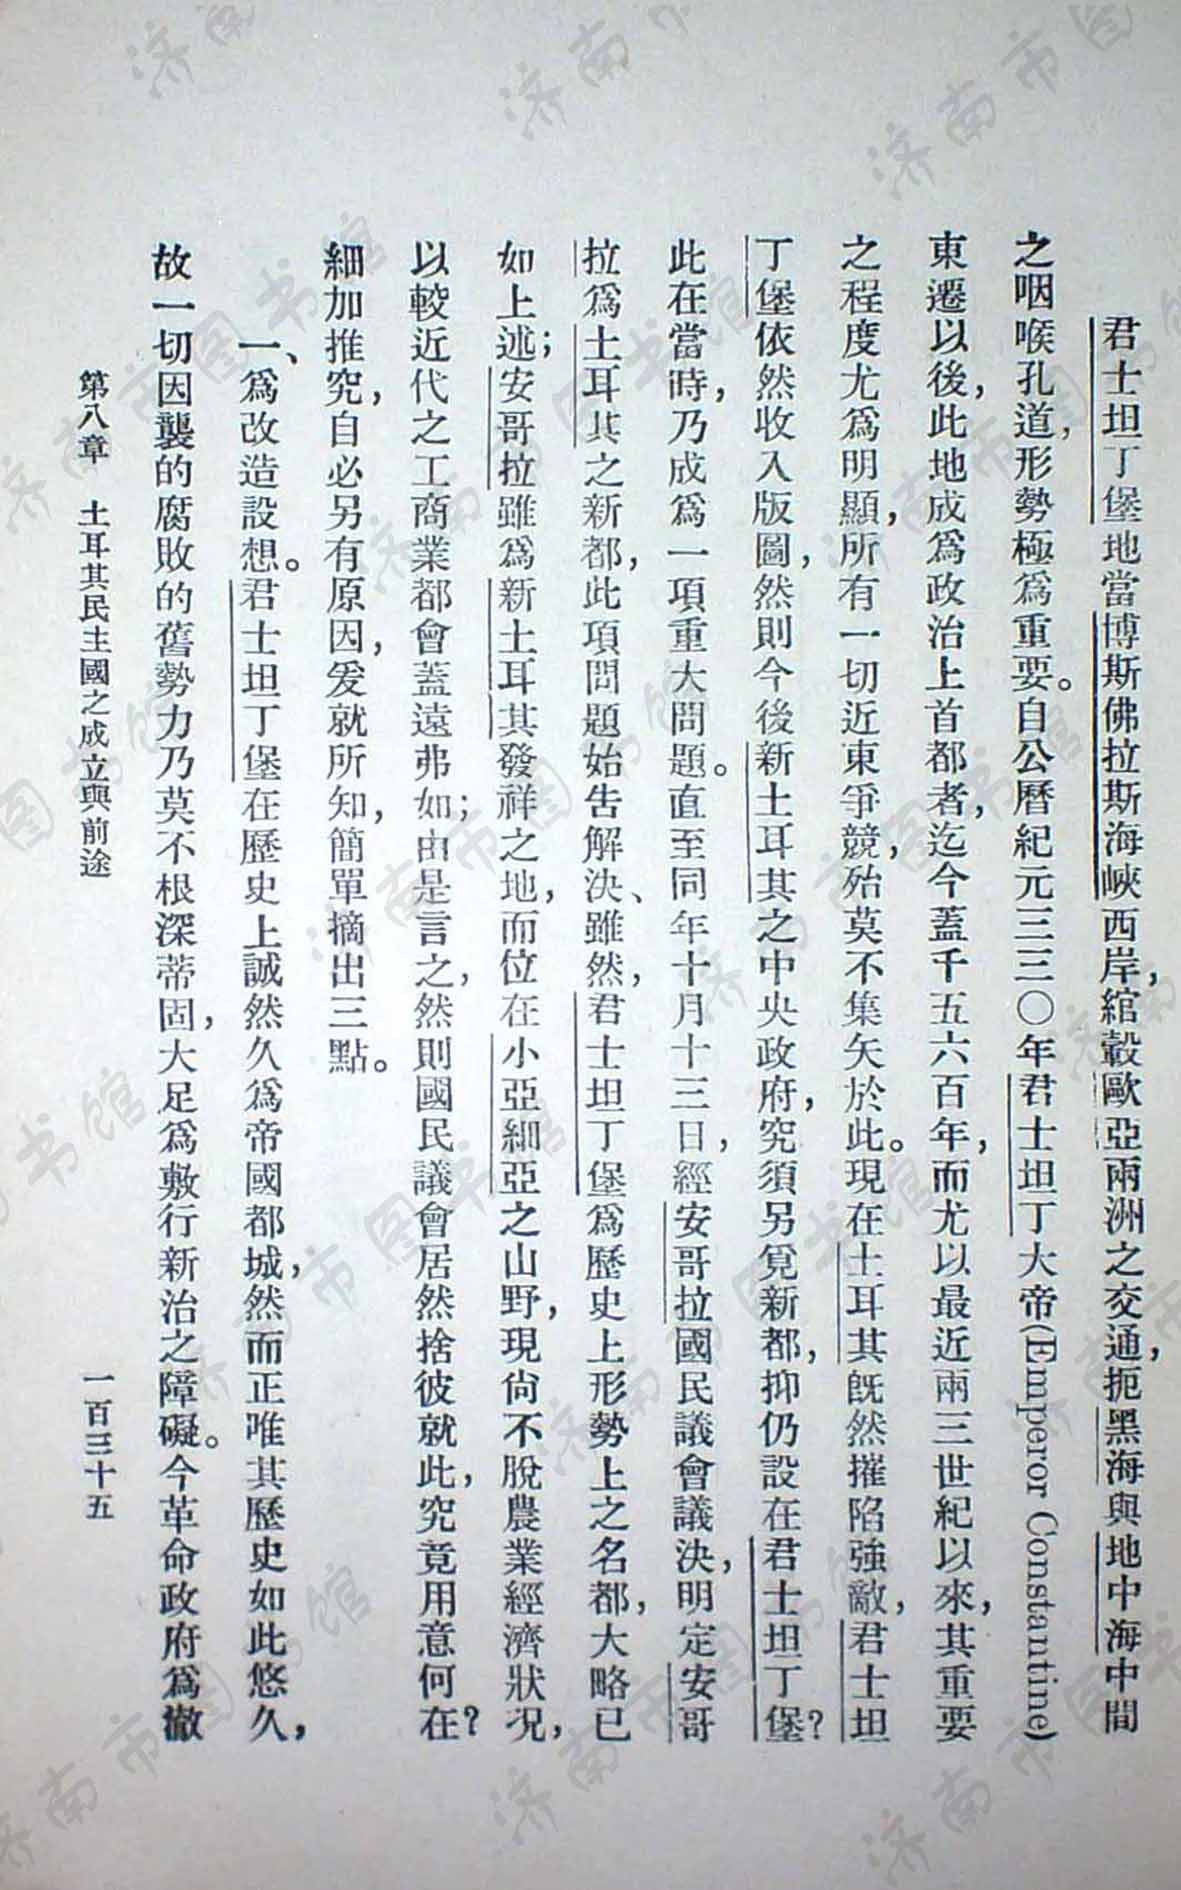 君士坦丁堡地當博斯佛拉斯海峽西岸，綰轂歐亞兩洲之交通，扼黑海與地中海中間
之咽喉孔道，形勢極爲重要。自公曆紀元三三〇年君士坦丁大帝(Emperor Constantine)
東遷以後，此地成爲政治上首都者，迄今蓋千五六百年，而尤以最近兩三世紀以來，其重要
之程度尤爲明顯，所有一切近東爭競，殆莫不集矢於此。現在土耳其既然摧陷強敵，君士坦
丁堡依然收入版圖，然則今後新土耳其之中央政府，究須另覓新都，抑仍設在君士坦丁堡？
此在當時，乃成爲一項重大問題。直至同年十月十三日，經安哥拉國民議會議決，明定安哥
拉爲土耳其之新都，此項問題始告解決、雖然，君士坦丁堡爲歷史上形勢上之名都，大略已
如上述；安哥拉雖爲新土耳其發祥之地，而位在小亞細亞之山野，現尙不脫農業經濟狀況，
以較近代之工商業都會蓋遠弗如；由是言之，然則國民議會居然捨彼就此，究竟用意何在？
細加推究，自必另有原因，爰就所知，簡單摘出三點。
一、爲改造設想。君士坦丁堡在歷史上誠然久爲帝國都城，然而正唯其歷史如此悠久，
故一切因襲的腐敗的舊勢力乃莫不根深蒂固，大足爲敷行新治之障礙。今革命政府爲澈
第八章 土耳其民主國之成立與前途 一百三十五
濟南市图书馆